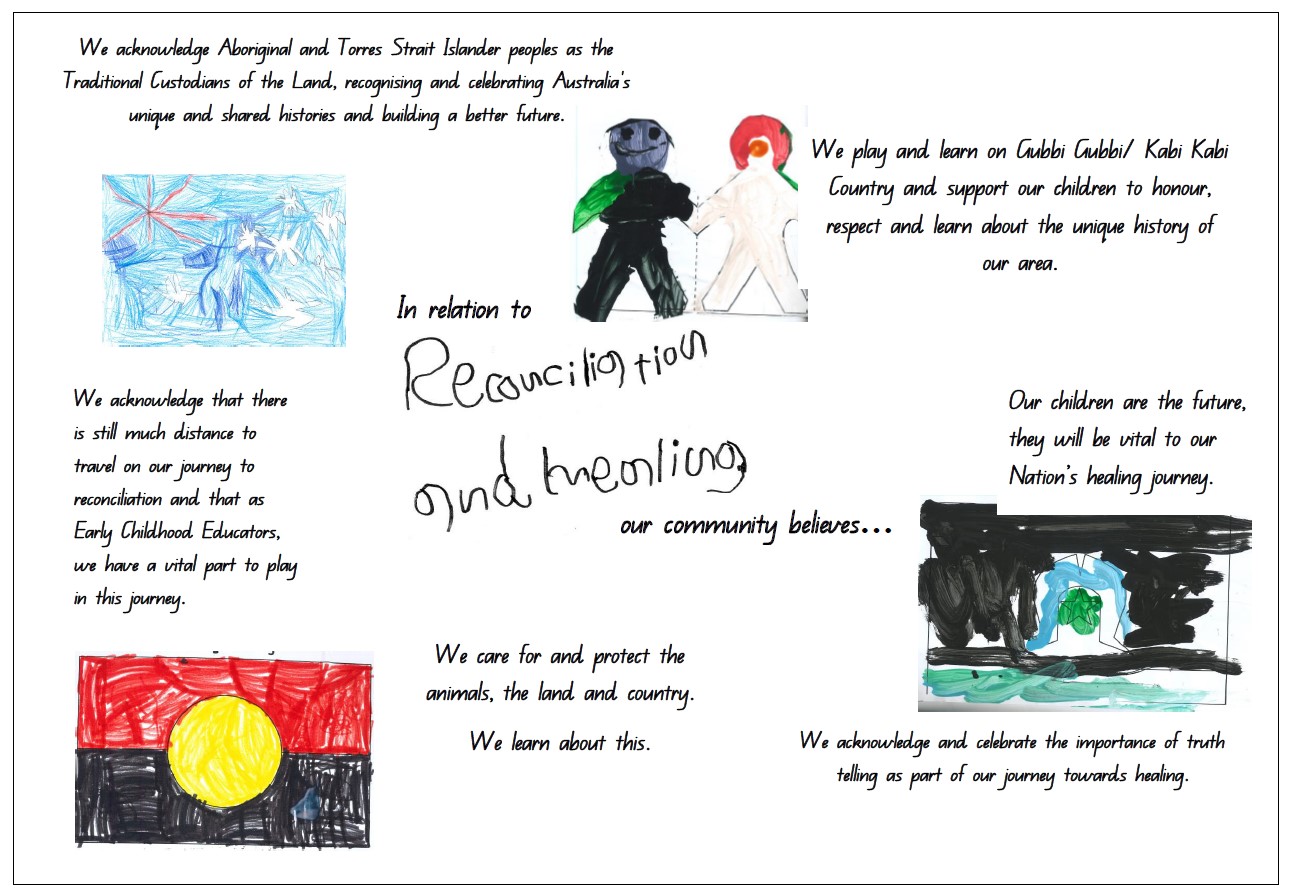 We acknowledge Aboriginal and Torres Strait Islander peoples as the
Traditional Custodians of the Land, recognising and celebrating Australia's
unique and shared histories and building a better future.
We play and learn on Gubbi Gubbi/ Kabi Kabi
Country and support our children to honour,
respect and learn about the unique history of
our area.
In relation to
Reconciliation
and healing
our community believes...
We acknowledge that there
is still much distance to
travel on our journey to
reconciliation and that as
Early Childhood Educators,
we have a vital part to play
in this journey.
Our children are the future,
they will be vital to our
Nation's healing journey.
We care for and protect the
animals, the land and country.
We learn about this.
We acknowledge and celebrate the importance of truth
telling as part of our journey towards healing.